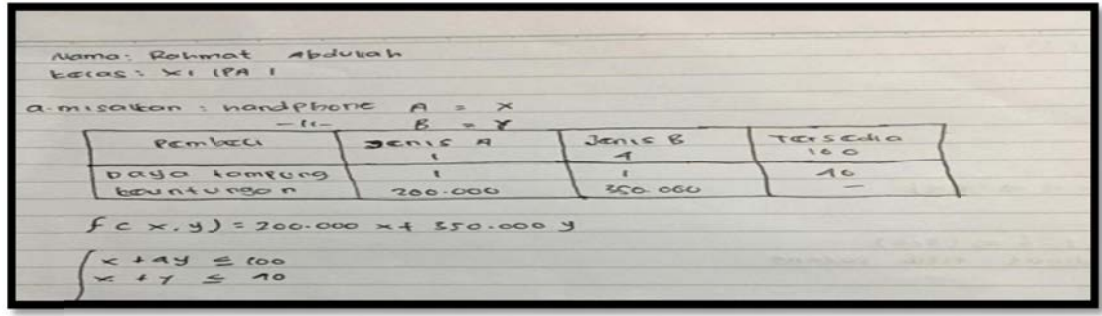 Nama: Rahmat Abdullah
Kelas: XI IPA 1
a. misalkan : handphone A = X
-11- B = Y
Pembeli Jenis A Jenis B Tersedia
1 4 100
Daya tampung 1 1 40
keuntungan 200.000 350.000 -
f(x,y) = 200.000 x + 350.000 y
x + 4y ≤ 100
x + y ≤ 40